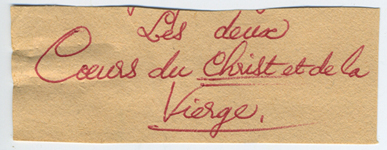 Les deux
Cœurs du Christ et de la
Vierge.